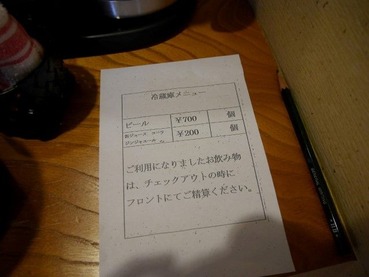 冷蔵庫メニュー
ビール ¥700 個
缶ジュース コーラ ¥200 個
ジンジャエール
ご利用になりましたお飲み物
は、チェックアウトの時に
フロントにてご精算ください。